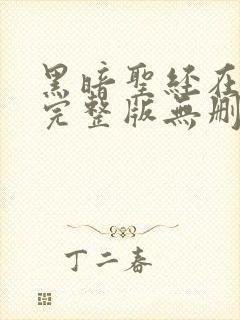 黑暗聖經在
完整版無刪
丁二春